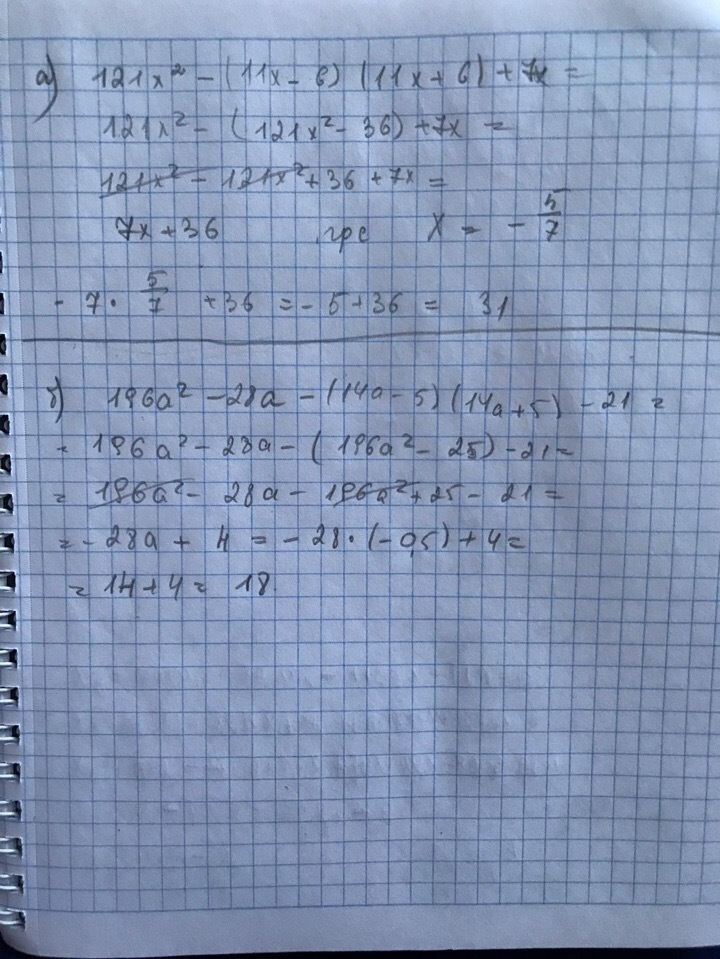 а) 121x² - (11x - 6) (11x + 6) + 7x =
121x² - (121x² - 36) + 7x =
121x² - 121x² + 36 + 7x =
7x + 36 при x = - 5/7
- 7 · 5/7 + 36 = - 5 + 36 = 31
б) 196a² - 28a - (14a - 5) (14a + 5) - 21 =
= 196a² - 28a - (196a² - 25) - 21 =
= 196a² - 28a - 196a² + 25 - 21 =
= - 28a + 4 = - 28 · (- 0,5) + 4 =
= 14 + 4 = 18.